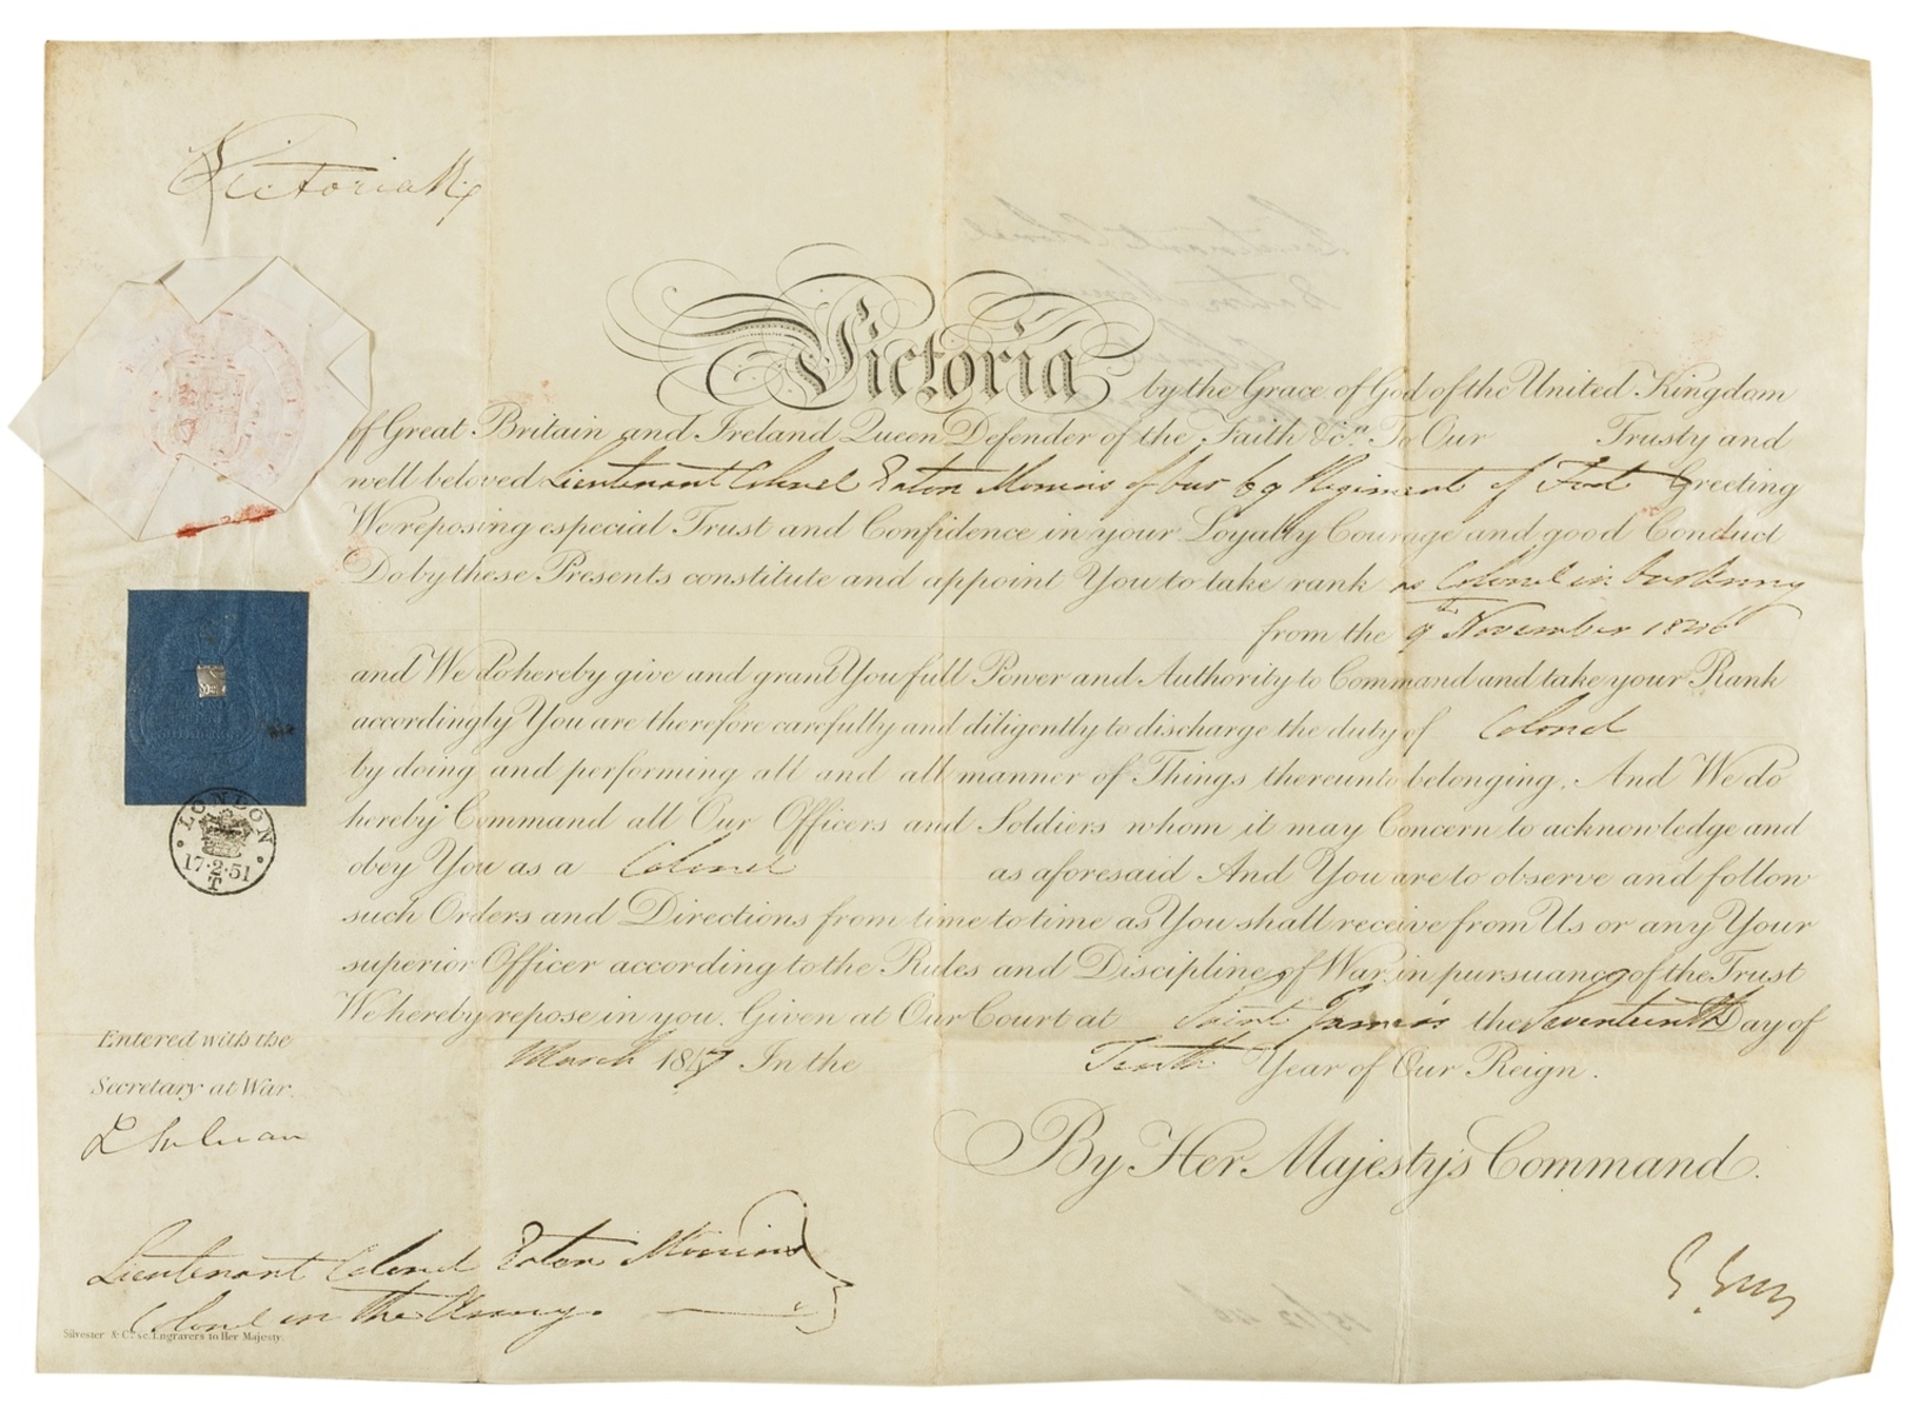 Victoria R
Victoria by the Grace of God of the United Kingdom
of Great Britain and Ireland Queen Defender of the Faith &c.a To Our Trusty and
well beloved Lieutenant Colonel Eaton Monins of Our 69 Regiment of Foot Greeting
We reposing especial Trust and Confidence in your Loyalty Courage and good Conduct
Do by these Presents constitute and appoint You to take rank as Colonel in Our Army
from the 9th November 1846
and We Do hereby give and grant You full Power and Authority to Command and take your Rank
accordingly You are therefore carefully and diligently to discharge the duty of Colonel
by doing and performing all and all manner of Things thereunto belonging. And We do
hereby Command all Our Officers and Soldiers whom it may Concern to acknowledge and
obey You as a Colonel as aforesaid And You are to observe and follow
such Orders and Directions from time to time as You shall receive from Us or any Your
superior Officer according to the Rules and Discipline of War in pursuance of the Trust
We hereby repose in you. Given at Our Court at Saint James's the Seventeenth Day of
March 1847 In the Tenth Year of Our Reign.
By Her Majesty's Command.
G. Grey
LONDON
17·2·51
T
Entered with the
Secretary at War.
L Sulivan
Lieutenant Colonel Eaton Monins
Colonel in the Army.
Silvester & Co. sc. Engravers to Her Majesty.